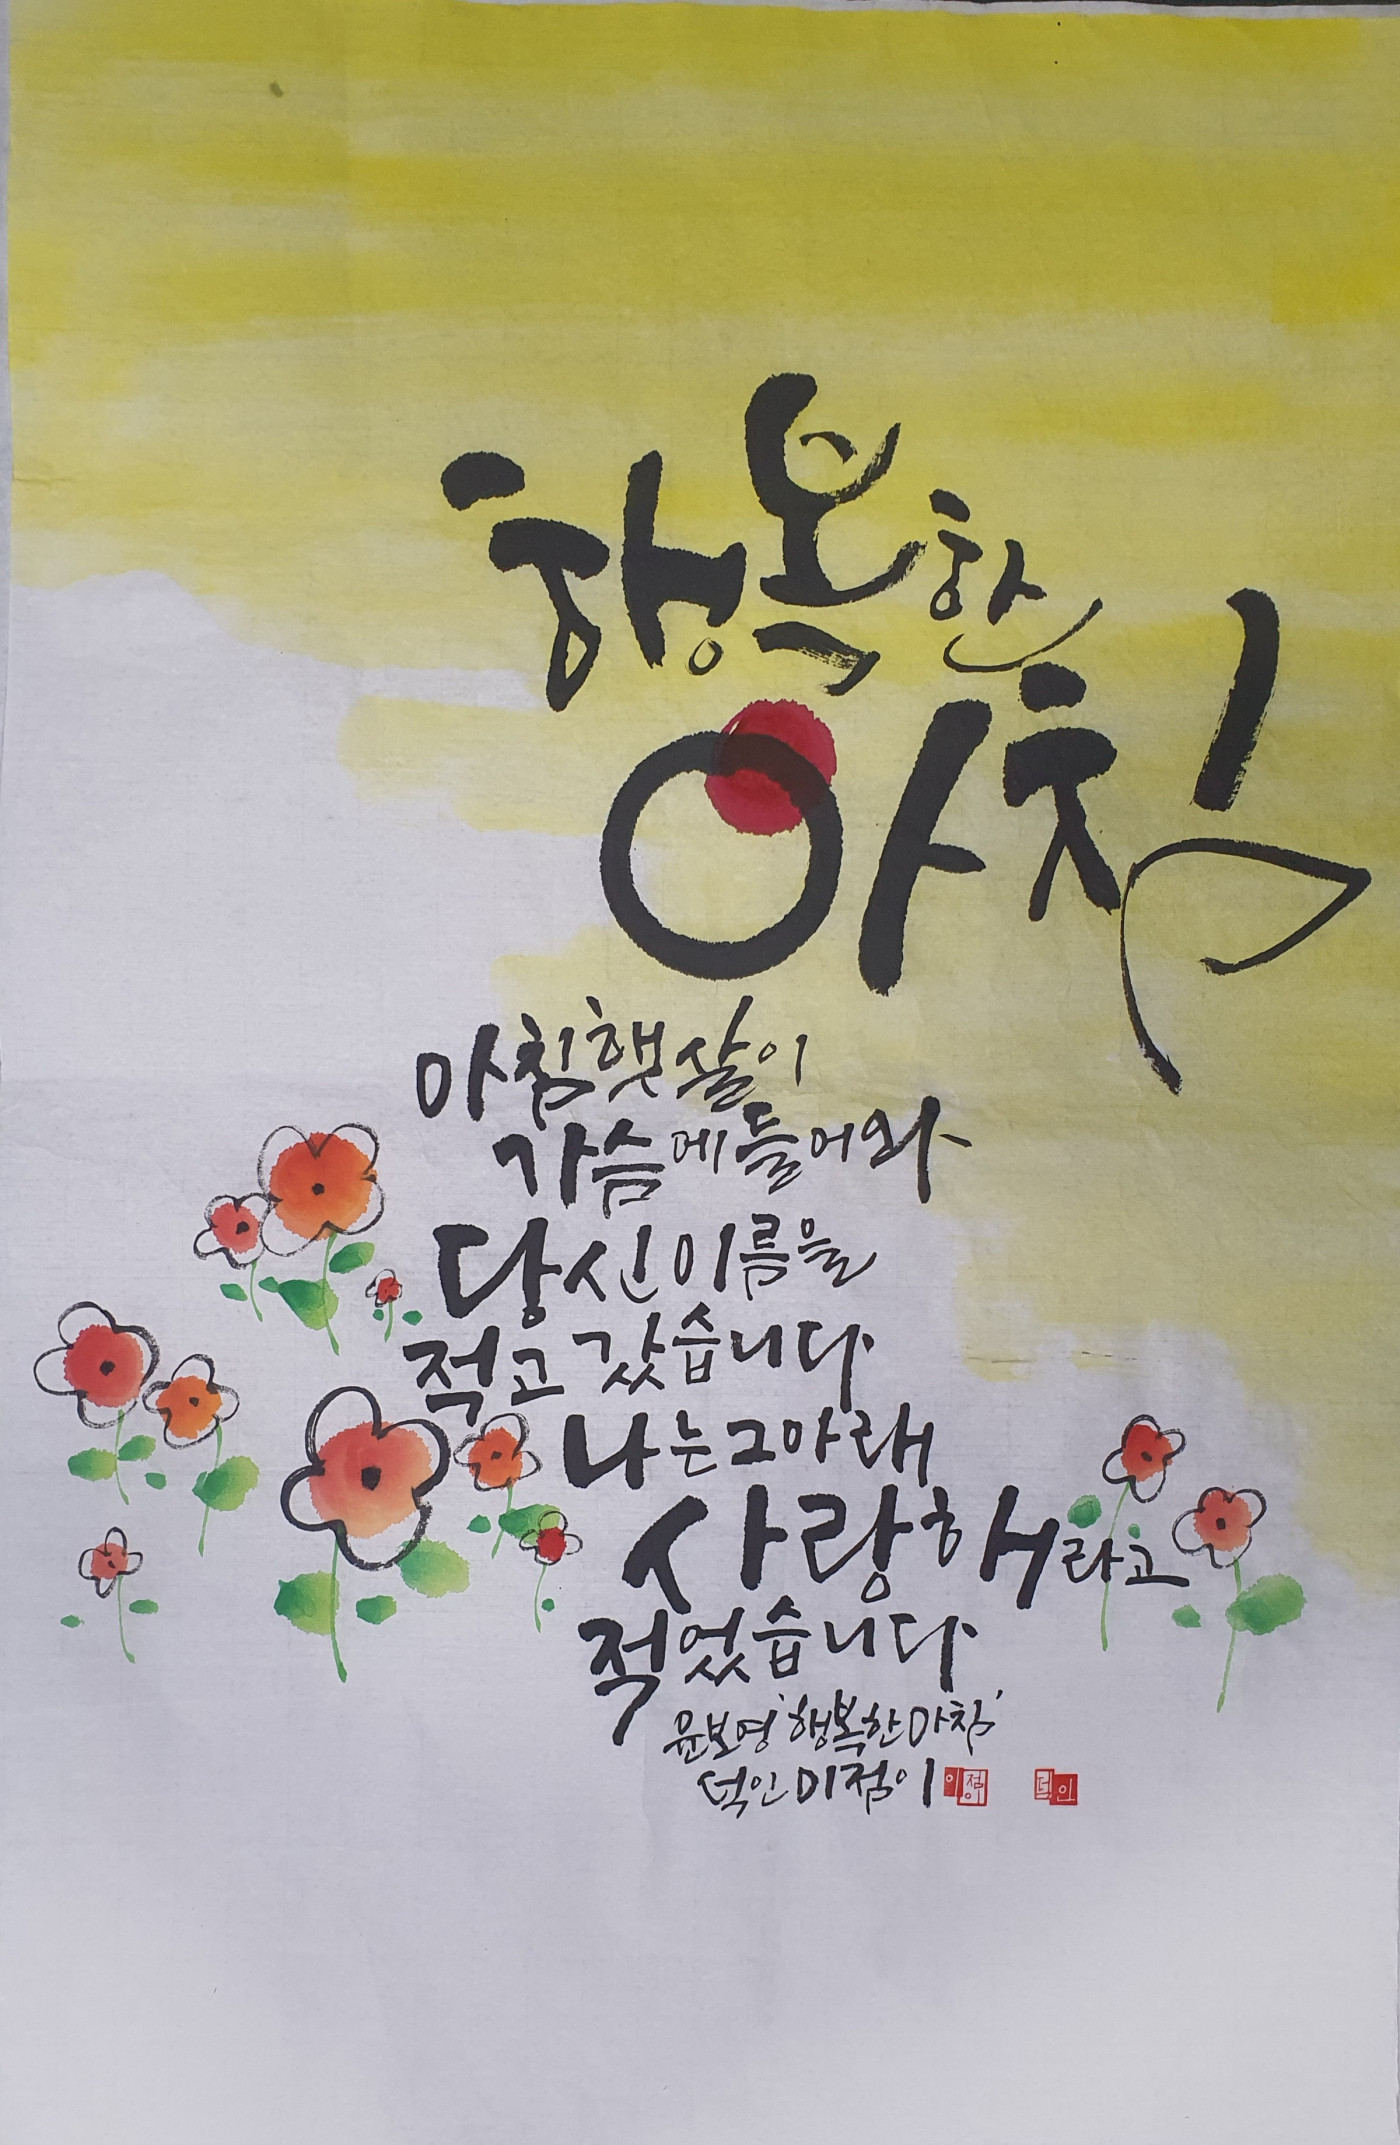 행복한
아침
아침햇살이
가슴에 들어와
당신 이름을
적고 갔습니다
나는 그 아래
사랑해라고
적었습니다
윤보영 '행복한 아침'
덕인 이점이
이점이 덕인